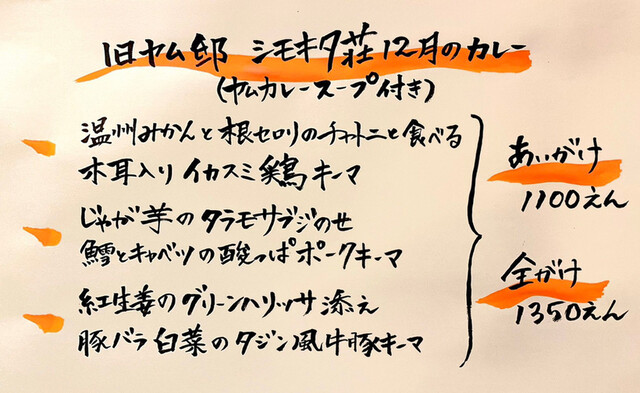 旧ヤム邸 シモキタ荘 12月のカレー
(ヤムカレースープ付き)
温州みかんと根セロリのチャトニと食べる
木耳入り イカスミ鶏キーマ
じゃが芋のタラモサブジのせ
鱈とキャベツの酸っぱポークキーマ
紅生姜のグリーンハリッサ添え
豚バラ白菜のタジン風牛豚キーマ
あいがけ
1100えん
全がけ
1350えん